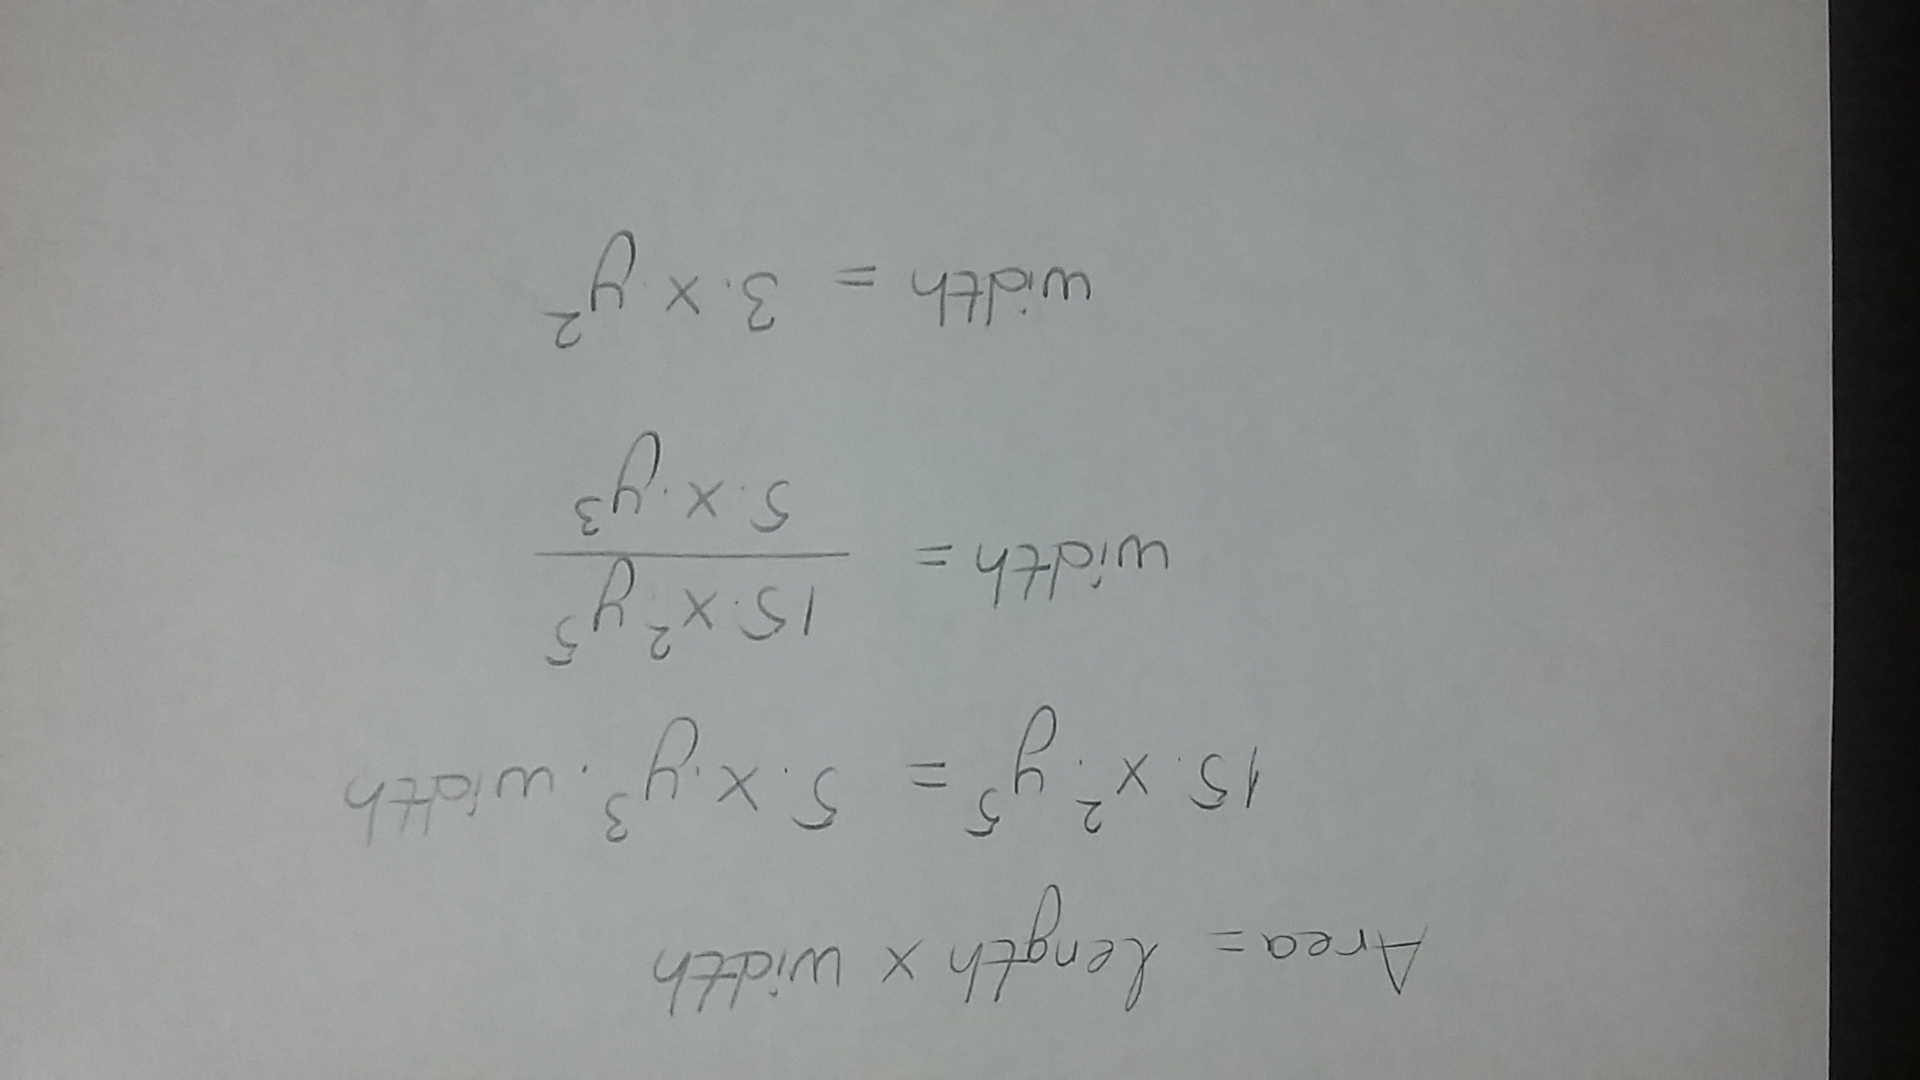 Area = Length x width
15.x².y⁵ = 5.x.y³.width
width = 15.x².y⁵ / 5.x.y³
width = 3.x.y²